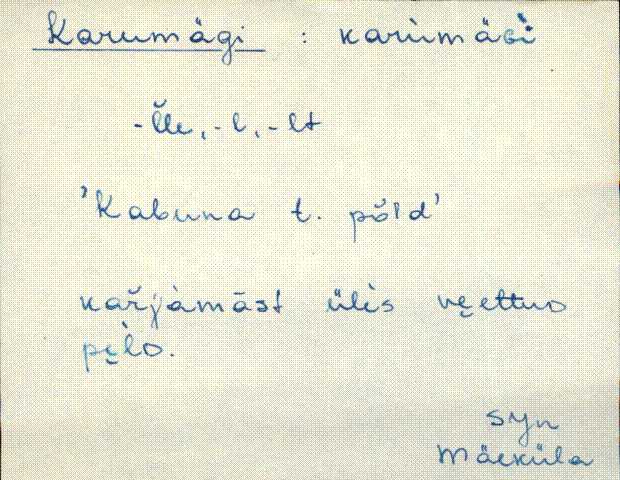 Karumägi : karùmäGì
-l̆le, -l, -lt
'Kabuna t. põld'
kařjàmāst ülès ve̬ettuo
pè̬lo.
Syn
Mäeküla